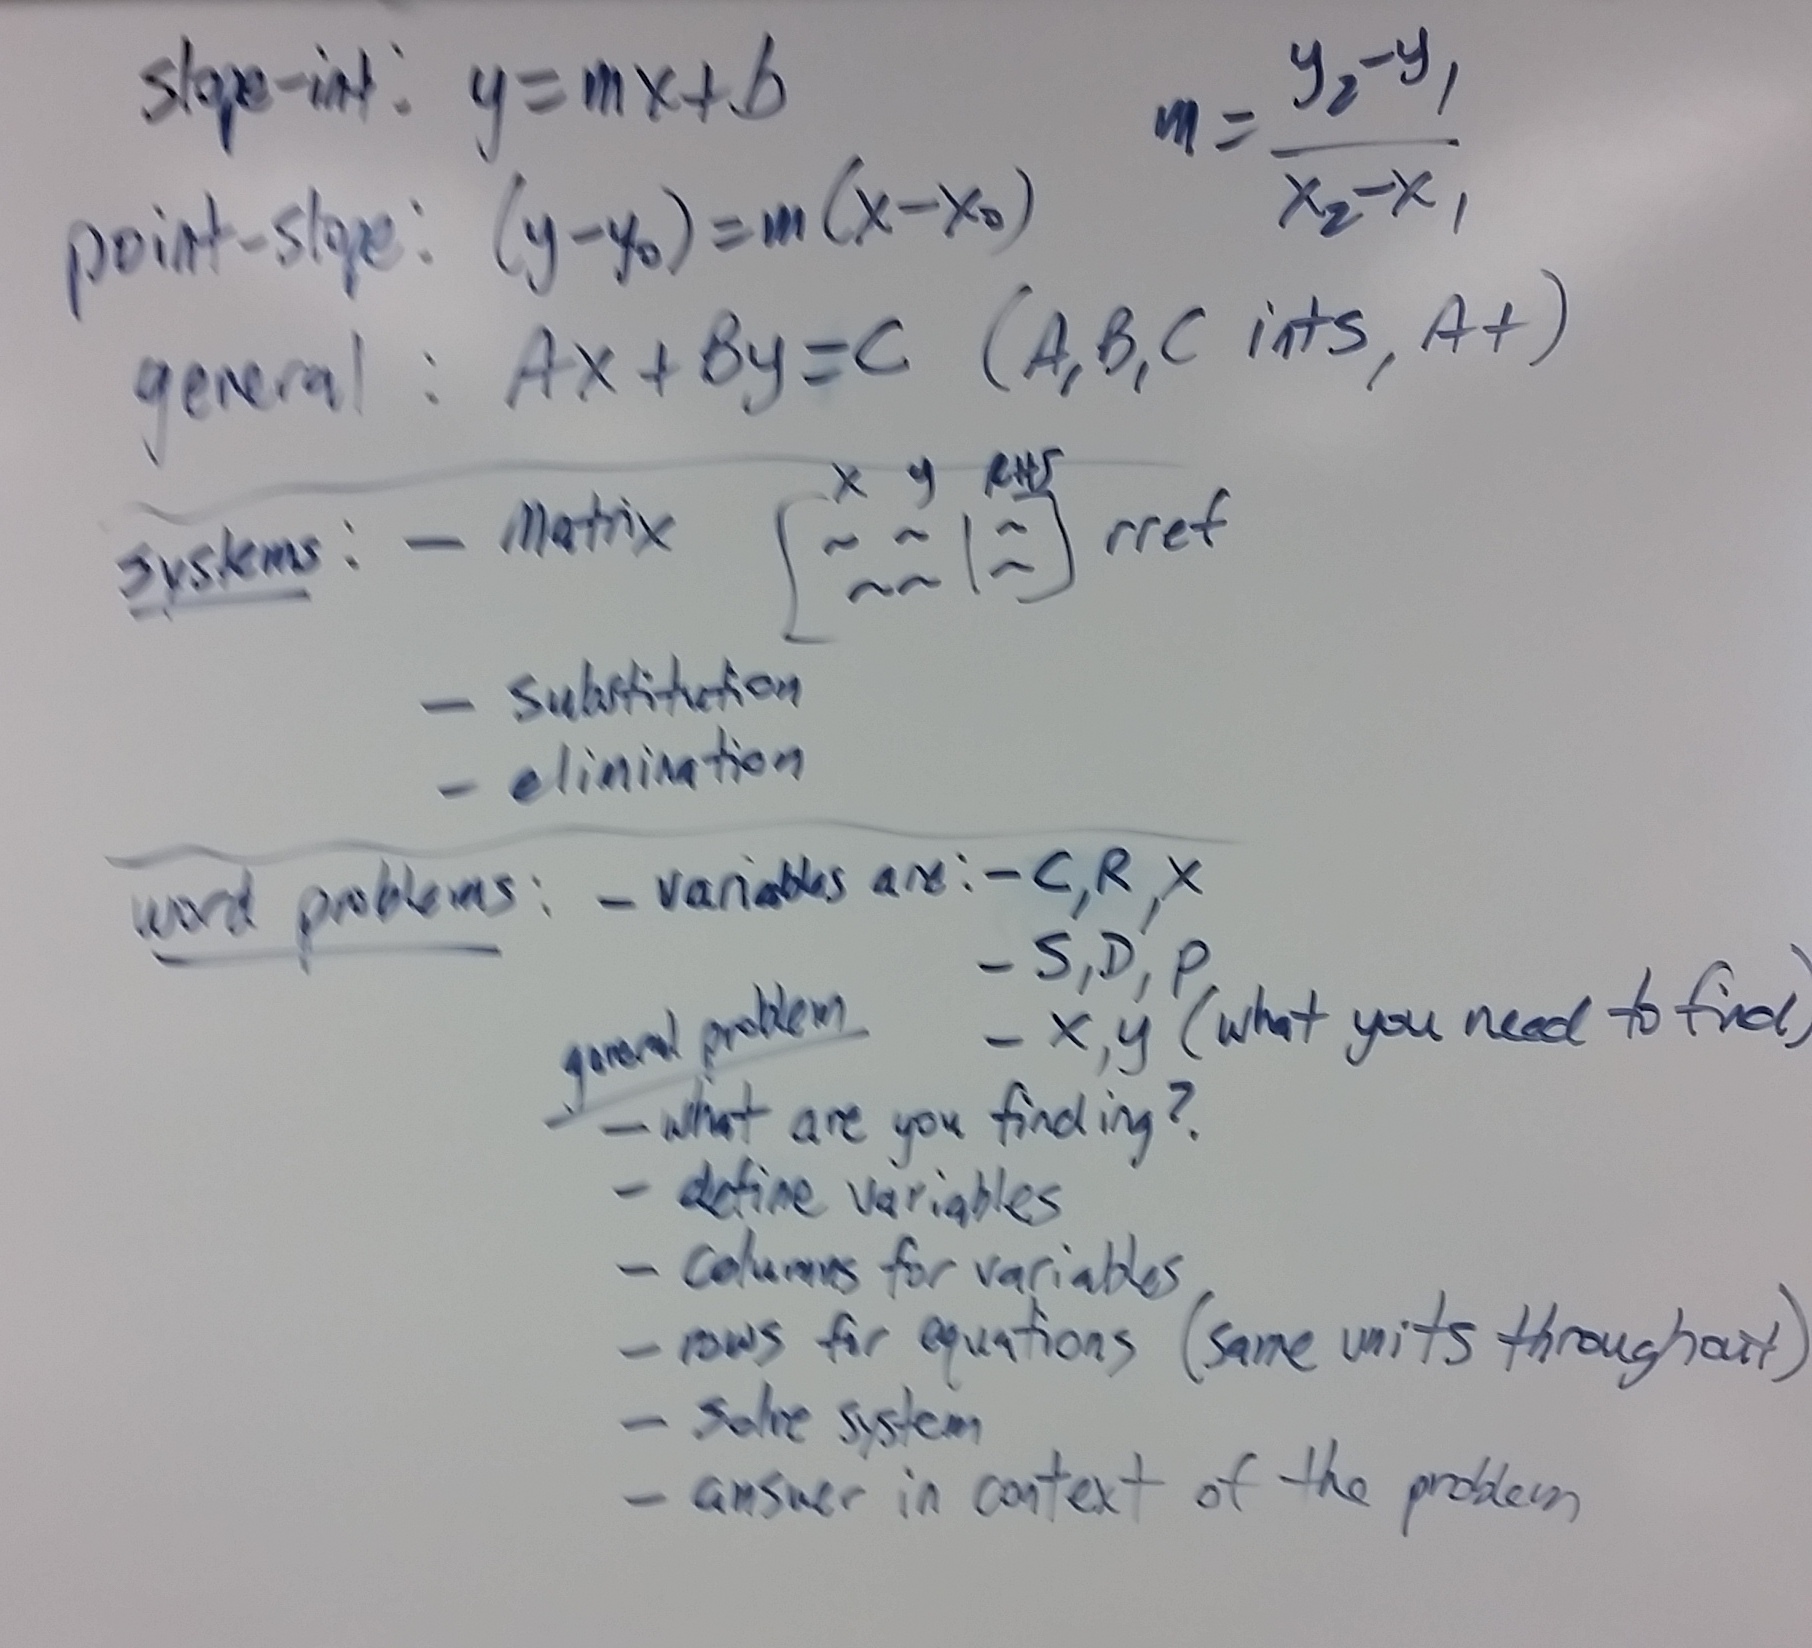 slope-int: y=mx+b
m = y₂-y₁ / x₂-x₁
point-slope: (y-y₀)=m(x-x₀)
general: Ax+By=C (A,B,C ints, A+)
x y RHS
systems: - Matrix [~ ~ | ~] rref
~ ~ | ~
- substitution
- elimination
word problems: - variables are: - C,R,X
- S,D,P
- x,y (what you need to find)
general problem
- what are you finding?
- define variables
- columns for variables
- rows for equations (same units throughout)
- solve system
- answer in context of the problem